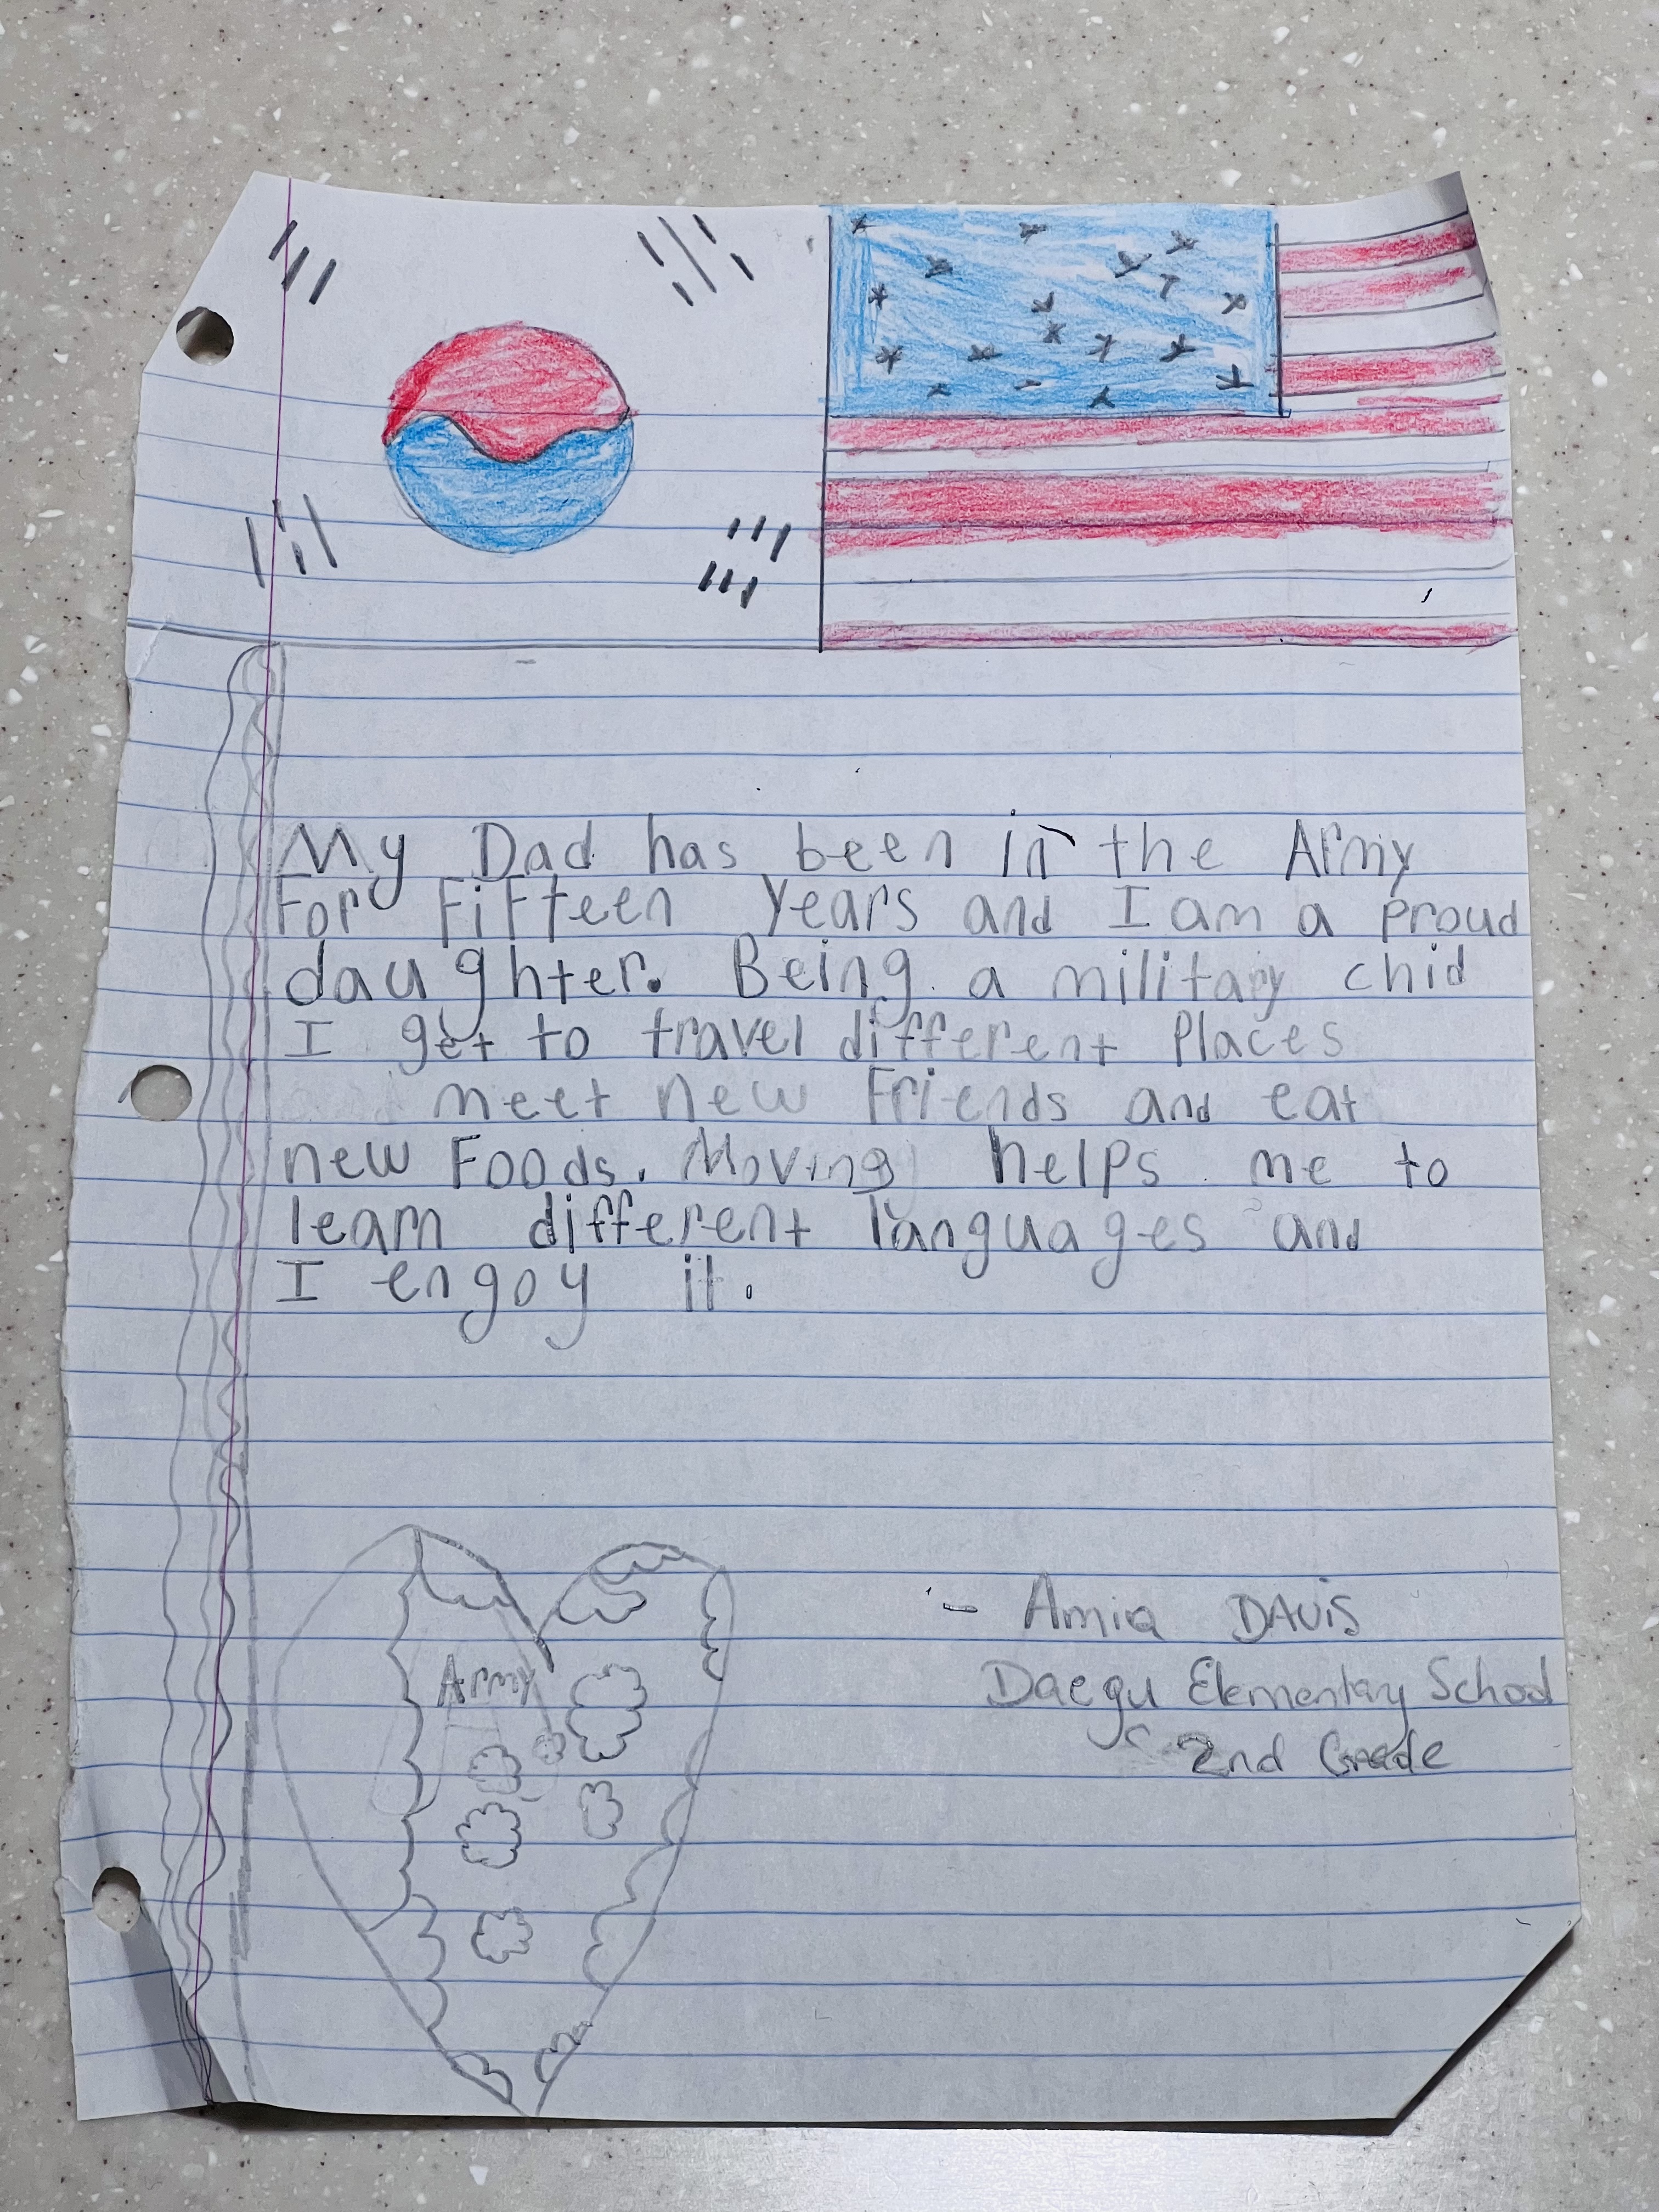 My Dad has been in the Army
For Fifteen Years and I am a proud
daughter. Being a military chid
I get to travel different Places
meet new Friends and eat
new Foods. Moving helps me to
learn different languages and
I engoy it.
Army
- Amia DAvis
Daegu Elementary School
2nd Grade